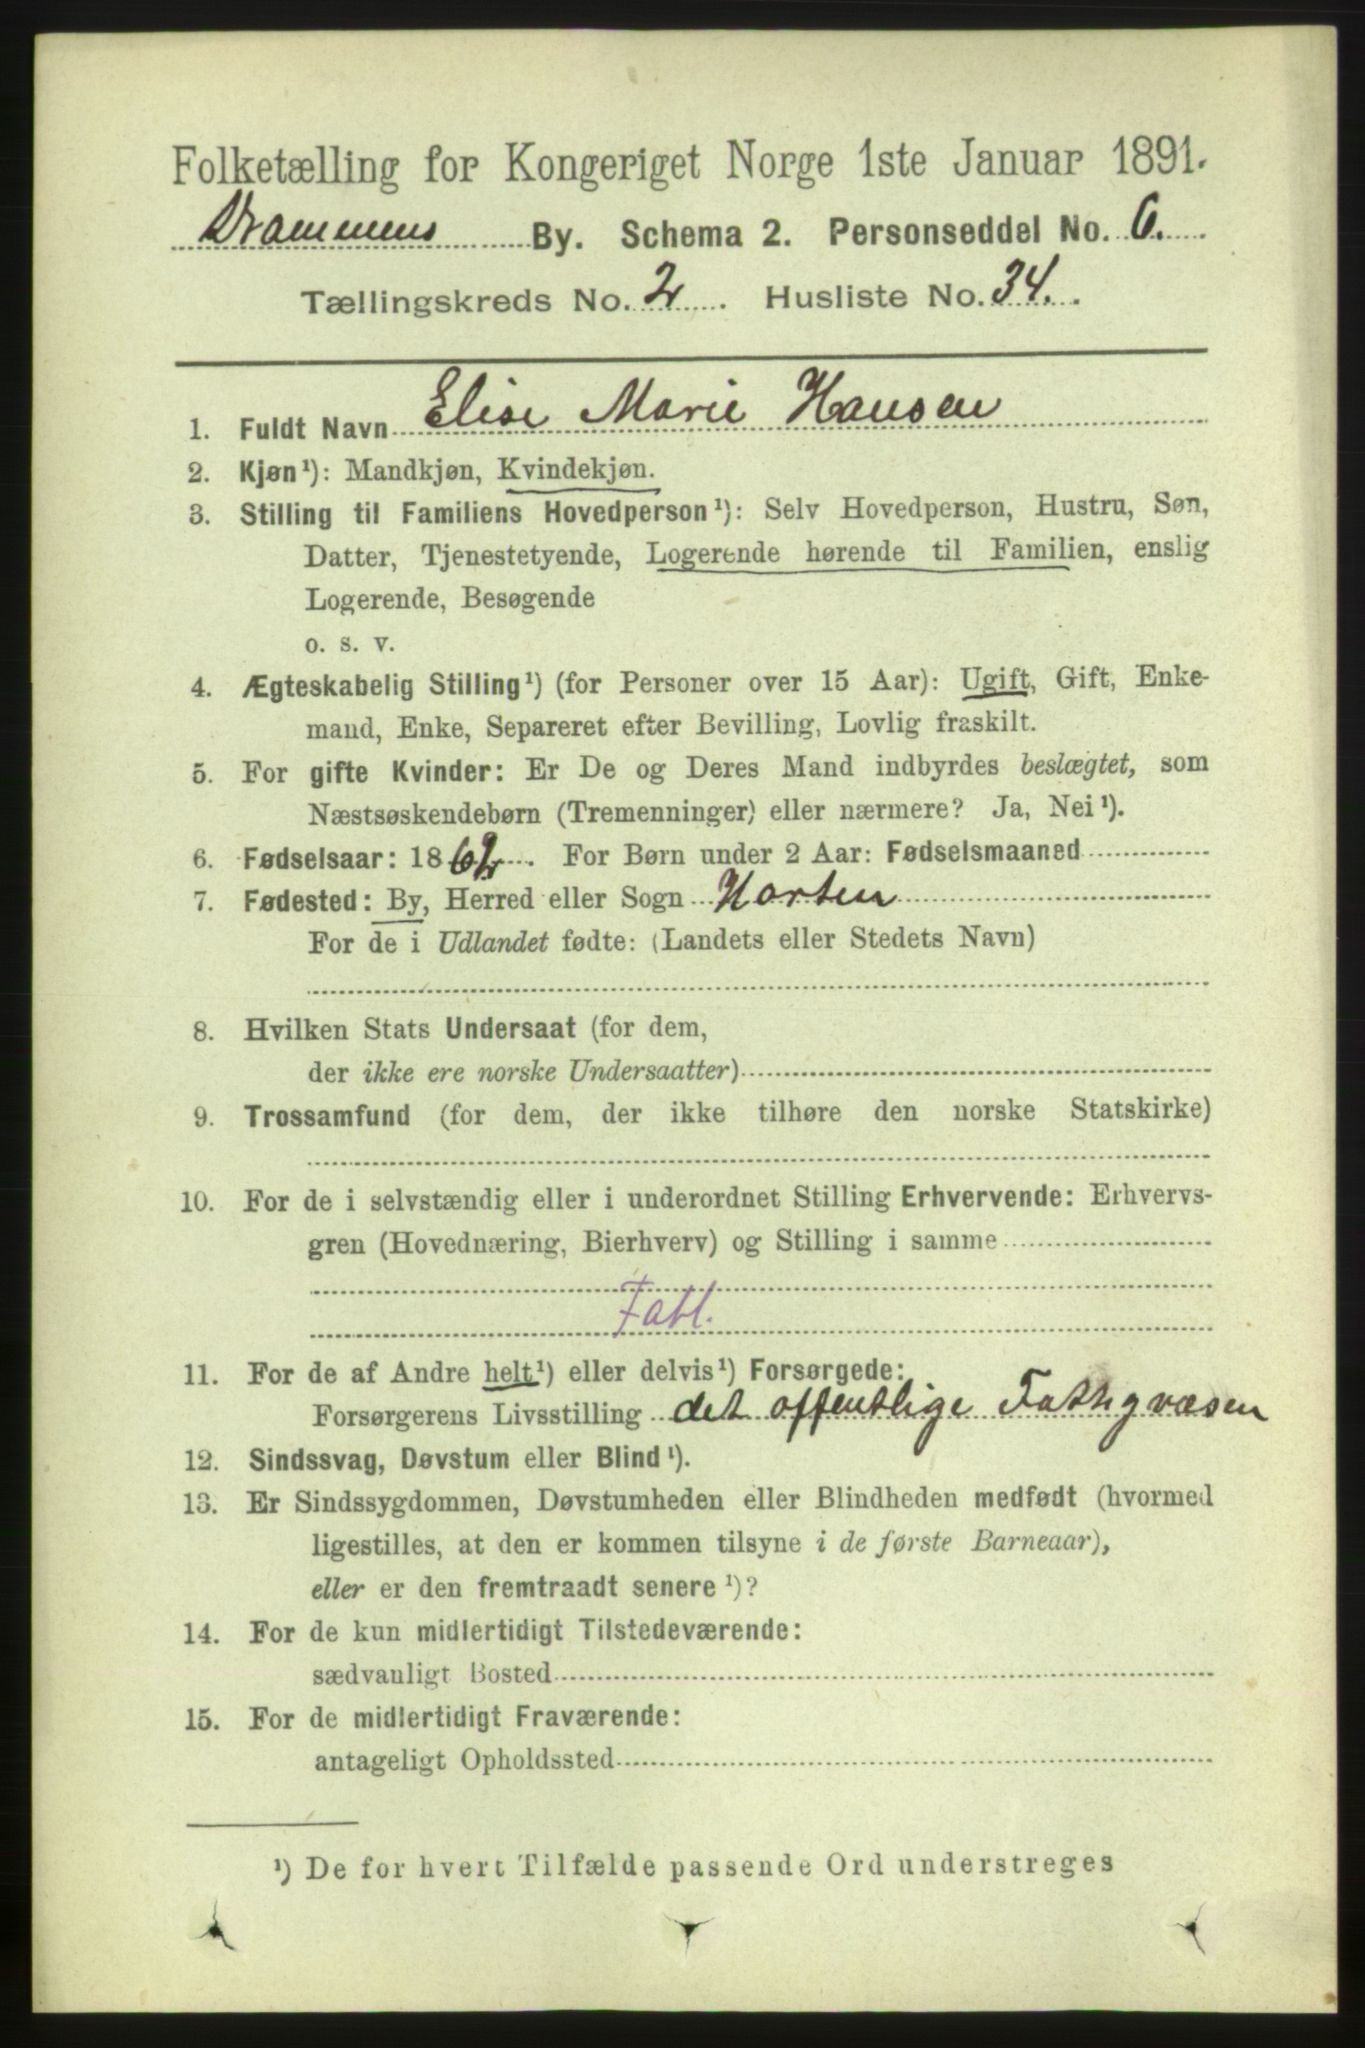 Folketælling for Kongeriget Norge 1ste Januar 1891.
Drammens By. Schema 2. Personseddel No. 6.
Tællingskreds No. 2. Husliste No. 34.
1. Fuldt Navn Elise Marie Hansen
2. Kjøn¹): Mandkjøn, Kvindekjøn.
3. Stilling til Familiens Hovedperson¹): Selv Hovedperson, Hustru, Søn,
Datter, Tjenestetyende, Logerende hørende til Familien, enslig
Logerende, Besøgende
o. s. v.
4. Ægteskabelig Stilling¹) (for Personer over 15 Aar): Ugift, Gift, Enke-
mand, Enke, Separeret efter Bevilling, Lovlig fraskilt.
5. For gifte Kvinder: Er De og Deres Mand indbyrdes beslægtet, som
Næstsøskendebørn (Tremenninger) eller nærmere? Ja, Nei¹).
6. Fødselsaar: 1862. For Børn under 2 Aar: Fødselsmaaned
7. Fødested: By, Herred eller Sogn Horten
For de i Udlandet fødte: (Landets eller Stedets Navn)
8. Hvilken Stats Undersaat (for dem,
der ikke ere norske Undersaatter)
9. Trossamfund (for dem, der ikke tilhøre den norske Statskirke)
10. For de i selvstændig eller i underordnet Stilling Erhvervende: Erhvervs-
gren (Hovednæring, Bierhverv) og Stilling i samme
Fatl.
11. For de af Andre helt¹) eller delvis¹) Forsørgede:
Forsørgerens Livsstilling det offentlige Fattigvæsen
12. Sindssvag, Døvstum eller Blind¹).
13. Er Sindssygdommen, Døvstumheden eller Blindheden medfødt (hvormed
ligestilles, at den er kommen tilsyne i de første Barneaar),
eller er den fremtraadt senere¹)?
14. For de kun midlertidigt Tilstedeværende:
sædvanligt Bosted
15. For de midlertidigt Fraværende:
antageligt Opholdssted
¹) De for hvert Tilfælde passende Ord understreges